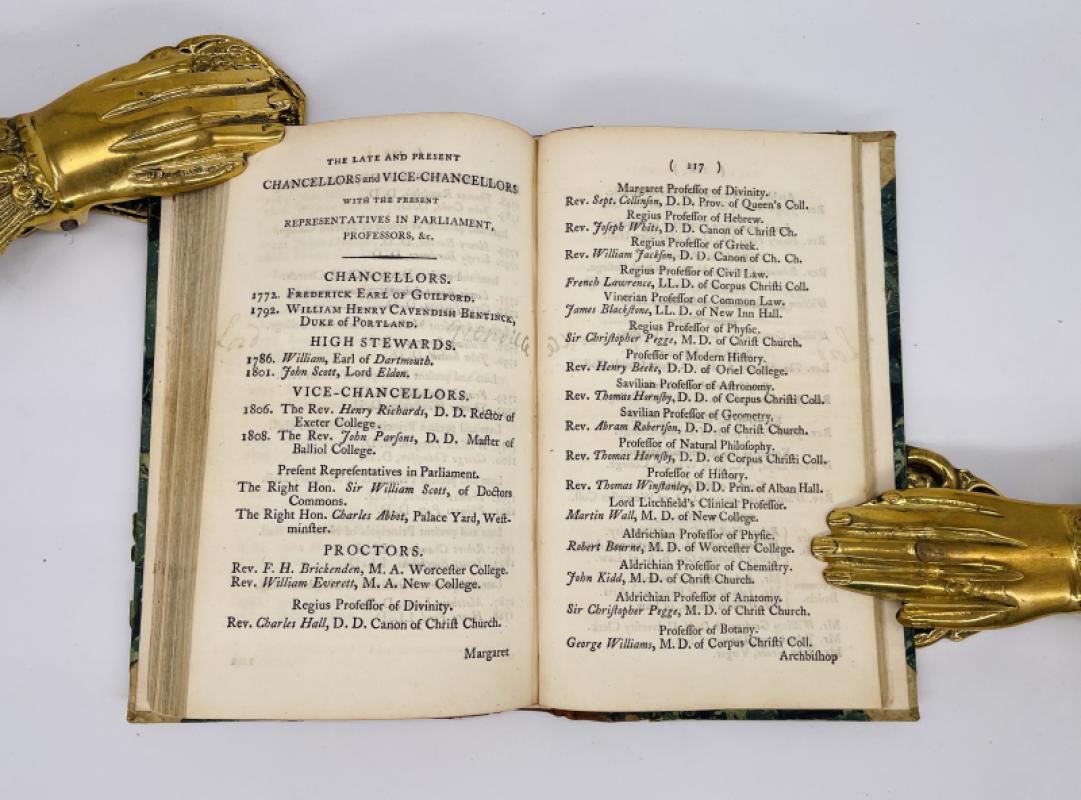 THE LATE AND PRESENT
CHANCELLORS and VICE-CHANCELLORS
WITH THE PRESENT
REPRESENTATIVES IN PARLIAMENT,
PROFESSORS, &c.
CHANCELLORS.
1772. FREDERICK EARL OF GUILFORD.
1792. WILLIAM HENRY CAVENDISH BENTINCK,
DUKE OF PORTLAND.
Lord Grenville
HIGH STEWARDS.
1786. William, Earl of Dartmouth.
1801. John Scott, Lord Eldon.
VICE-CHANCELLORS.
1806. The Rev. Henry Richards, D. D. Rector of
Exeter College.
1808. The Rev. John Parsons, D. D. Master of
Balliol College.
Present Representatives in Parliament.
The Right Hon. Sir William Scott, of Doctors
Commons.
The Right Hon. Charles Abbot, Palace Yard, West-
minster.
PROCTORS.
Rev. F. H. Brickenden, M. A. Worcester College.
Rev. William Everett, M. A. New College.
Regius Professor of Divinity.
Rev. Charles Hall, D. D. Canon of Christ Church.
Margaret
( 117 )
Margaret Professor of Divinity.
Rev. Sept. Collinson, D. D. Prov. of Queen's Coll.
Regius Professor of Hebrew.
Rev. Joseph White, D. D. Canon of Christ Ch.
Regius Professor of Greek.
Rev. William Jackson, D. D. Canon of Ch. Ch.
Regius Professor of Civil Law.
French Lawrence, LL. D. of Corpus Christi Coll.
Vinerian Professor of Common Law.
James Blackstone, LL. D. of New Inn Hall.
Regius Professor of Physic.
Sir Christopher Pegge, M. D. of Christ Church.
Professor of Modern History.
Rev. Henry Beeke, D. D. of Oriel College.
Savilian Professor of Astronomy.
Rev. Thomas Hornsby, D. D. of Corpus Christi Coll.
Savilian Professor of Geometry.
Rev. Abram Robertson, D. D. of Christ Church.
Professor of Natural Philosophy.
Rev. Thomas Hornsby, D. D. of Corpus Christi Coll.
Professor of History.
Rev. Thomas Winstanley, D. D. Prin. of Alban Hall.
Lord Litchfield's Clinical Professor.
Martin Wall, M. D. of New College.
Aldrichian Professor of Physic.
Robert Bourne, M. D. of Worcester College.
Aldrichian Professor of Chemistry.
John Kidd, M. D. of Christ Church.
Aldrichian Professor of Anatomy.
Sir Christopher Pegge, M. D. of Christ Church.
Professor of Botany.
George Williams, M. D. of Corpus Christi Coll.
Archbishop